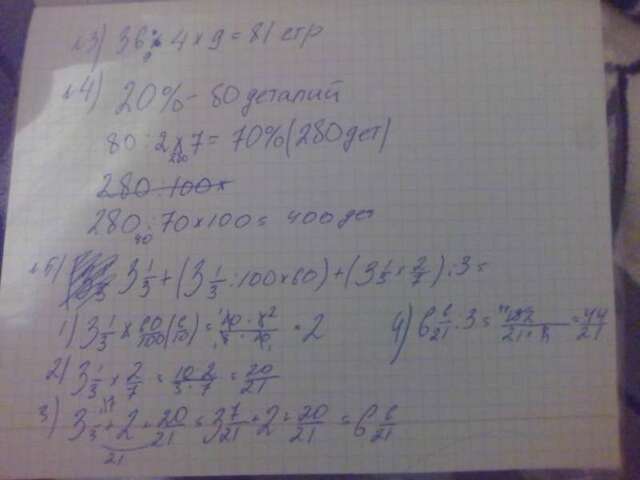 №3) 36 : 4 × 9 = 81 стр
№4) 20% - 80 деталий
80 : 2 × 7 = 70% (280 дет)
280
280 : 100 ×
280 : 70 × 100 = 400 дет
40
№5) 3 1/3 + (3 1/3 : 100 × 60) + (3 1/3 × 2/7) : 3 =
1) 3 1/3 × 60/100 (6/10) = = 2
4) 6 6/21 : 3 = = 44/21
2) 3 1/3 × 2/7 = 10·2/3·7 = 20/21
3) 3 1/3 + 2 + 20/21 = 3 7/21 + 2 + 20/21 = 6 6/21
21